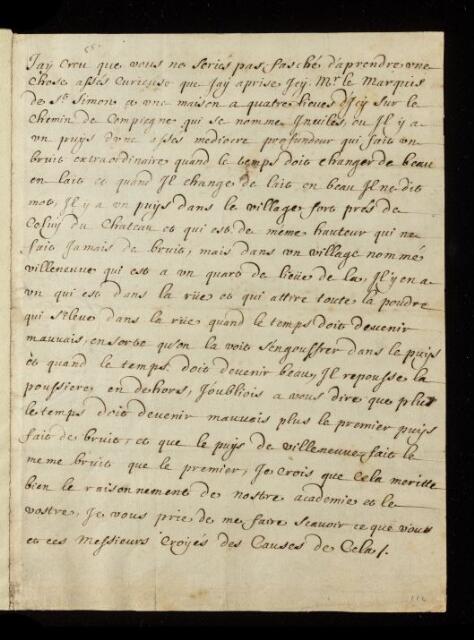 J'aÿ Creu que vous ne seriés pas faschè d'aprendre une
chose assés Curieuse que J'aÿ aprise Jcÿ. Mr. le Marquis
de St. Simon a une maison a quatre lieues d'Jcÿ sur le
chemin de Compiegne qui se nomme ou Jl ÿ a
un puys d'une asses mediocre profundeur qui fait un
bruit extraordinaire quand le temps doit changer de beau
en lait et quand Jl change de lait en beau Jl ne dit
mot, Jl ÿ a un puÿs dans le village fort prés de
Celuÿ du Chateau et qui est de meme hauteur qui ne
fait Jamais de bruit, mais dans un village nommé
villeneuve qui est a un quart de lieüe de la, Jl ÿ en a
un qui est dans la rüe et qui attire toute la poudre
qui s'eleve dans la rüe quand le temps doit devenir
mauvais, en sorte qu'on la voit s'engouffrer dans le puÿs
et quand le temps doit devenir beau, Jl repousse la
poussiere en dehors, J'oubliois a vous dire que plus
le temps doit devenir mauvais plus le premier puÿs
fait de bruit, et que le puÿs de villeneuve fait le
meme bruit que le premier, Je Crois que Cela meritte
bien le raisonnement de nostre academie et le
vostre, Je vous prie de me faire scavoir ce que vous
et ces Messieurs Croÿés des Causes de Cela /.